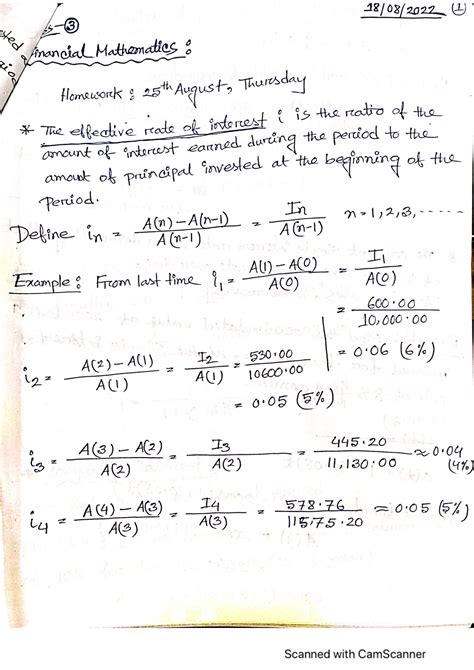 18/08/2022 ①
③
Financial Mathematics :
Homework : 25th August, Thursday
* The effective rate of interest i is the ratio of the
amount of interest earned during the period to the
amount of principal invested at the beginning of the
period.
Define iₙ = A(n) − A(n−1) / A(n−1) = Iₙ / A(n−1)   n = 1, 2, 3, ------
Example : From last time i₁ = A(1) − A(0) / A(0) = I₁ / A(0)
= 600.00 / 10,000.00
= 0.06 (6%)
i₂ = A(2) − A(1) / A(1) = I₂ / A(1) = 530.00 / 10600.00
= 0.05 (5%)
i₃ = A(3) − A(2) / A(2) = I₃ / A(2) = 445.20 / 11,130.00 ≈ 0.04 (4%)
i₄ = A(4) − A(3) / A(3) = I₄ / A(3) = 578.76 / 11575.20 ≈ 0.05 (5%)
Scanned with CamScanner